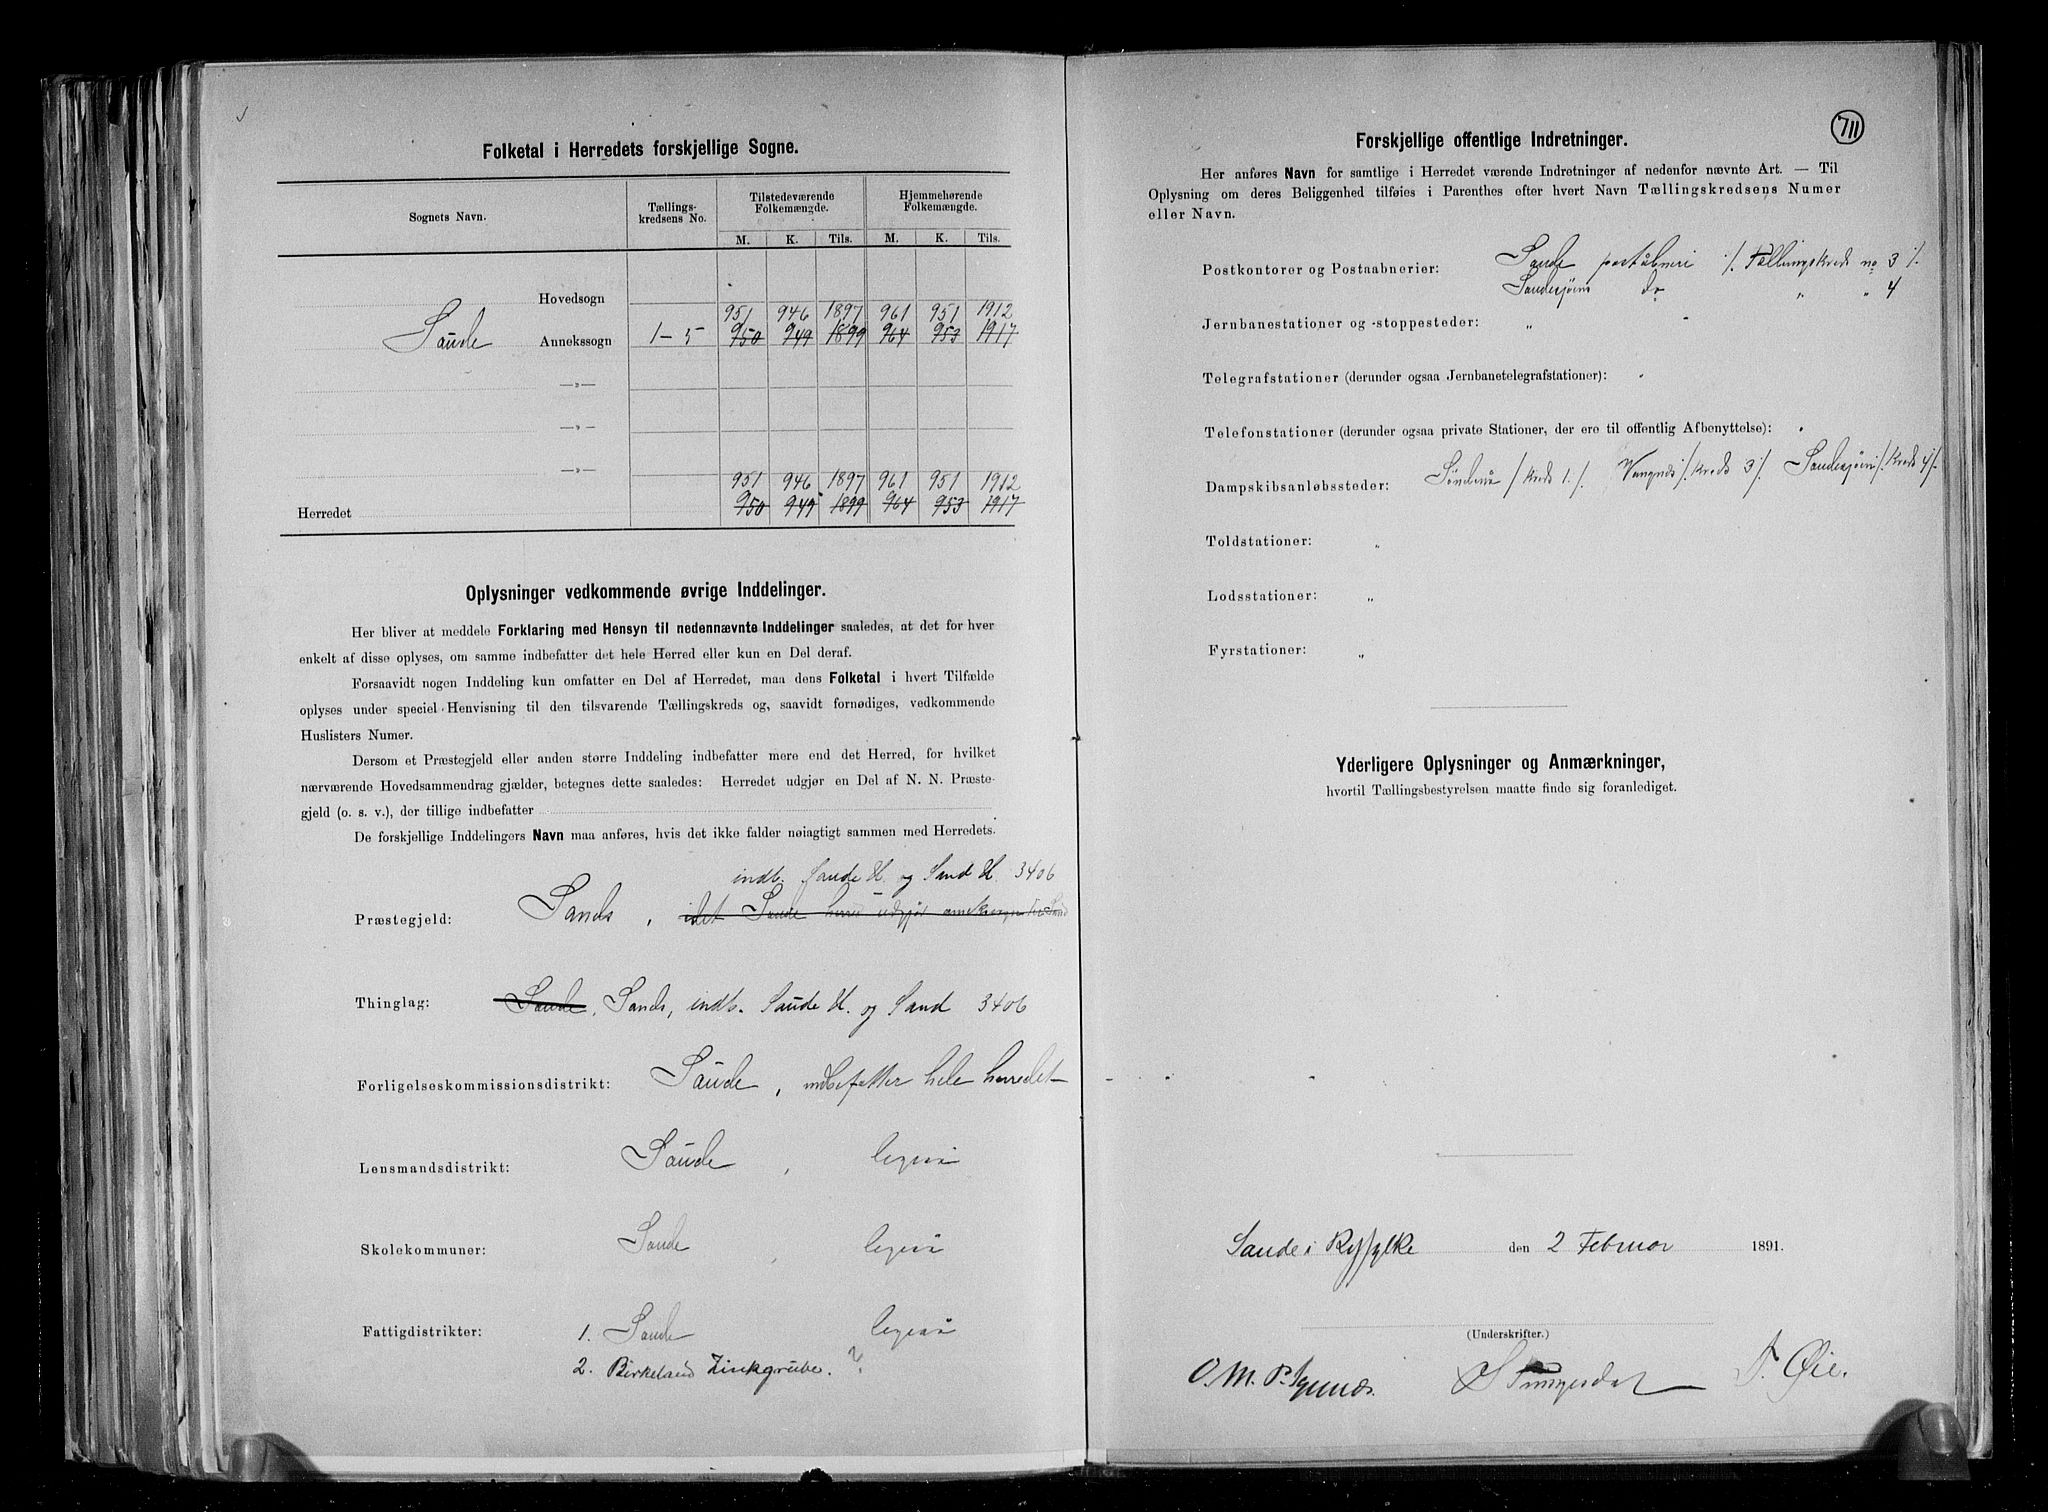 Folketal i Herredets forskjellige Sogne.
Sognets Navn.
Tællings-
kredsens No.
Tilstedeværende
Folkemængde.
Hjemmehørende
Folkemængde.
M. K. Tils. M. K. Tils.
Hovedsogn
951 946 1897 961 951 1912
Saude Annekssogn 1-5 950 949 1899 964 953 1917
—„—
—„—
—„—
951 946 1897 961 951 1912
Herredet 950 949 1899 964 953 1917
Oplysninger vedkommende øvrige Inddelinger.
Her bliver at meddele Forklaring med Hensyn til nedennævnte Inddelinger saaledes, at det for hver
enkelt af disse oplyses, om samme indbefatter det hele Herred eller kun en Del deraf.
Forsaavidt nogen Inddeling kun omfatter en Del af Herredet, maa dens Folketal i hvert Tilfælde
oplyses under speciel Henvisning til den tilsvarende Tællingskreds og, saavidt fornødiges, vedkommende
Huslisters Numer.
Dersom et Præstegjeld eller anden større Inddeling indbefatter mere end det Herred, for hvilket
nærværende Hovedsammendrag gjælder, betegnes dette saaledes: Herredet udgjør en Del af N. N. Præste-
gjeld (o. s. v.), der tillige indbefatter
De forskjellige Inddelingers Navn maa anføres, hvis det ikke falder nøiagtigt sammen med Herredets.
indb. Saude H. og Sand H. 3406
Præstegjeld: Sands, idet Saude herred udgjør annekssogn til Sand
Thinglag: Saude, Sands, indb. Saude H. og Sand 3406
Forligelseskommissionsdistrikt: Saude, indbefatter hele herredet
Lensmandsdistrikt: Saude, ligesaa
Skolekommuner: Saude, ligesaa
Fattigdistrikter: 1. Saude ligesaa
2. Birkeland Zinkgrube. ?
711
Forskjellige offentlige Indretninger.
Her anføres Navn for samtlige i Herredet værende Indretninger af nedenfor nævnte Art. — Til
Oplysning om deres Beliggenhed tilføies i Parenthes efter hvert Navn Tællingskredsens Numer
eller Navn.
Postkontorer og Postaabnerier: Saude postabneri /. Tællingskreds no 3 /.
Saudesjøen do „ „ 4
Jernbanestationer og -stoppesteder: „
Telegrafstationer (derunder ogsaa Jernbanetelegrafstationer):
Telefonstationer (derunder ogsaa private Stationer, der ere til offentlig Afbenyttelse):
Dampskibsanløbssteder: /Kreds 1./. /Kreds 3/. Saudesjøen /.Kreds 4/.
Toldstationer: „
Lodsstationer: „
Fyrstationer: „
Yderligere Oplysninger og Anmærkninger,
hvortil Tællingsbestyrelsen maatte finde sig foranlediget.
Saude i Ryfylke den 2 Februar 1891.
(Underskrifter.)
O. M. P. T. Øie.